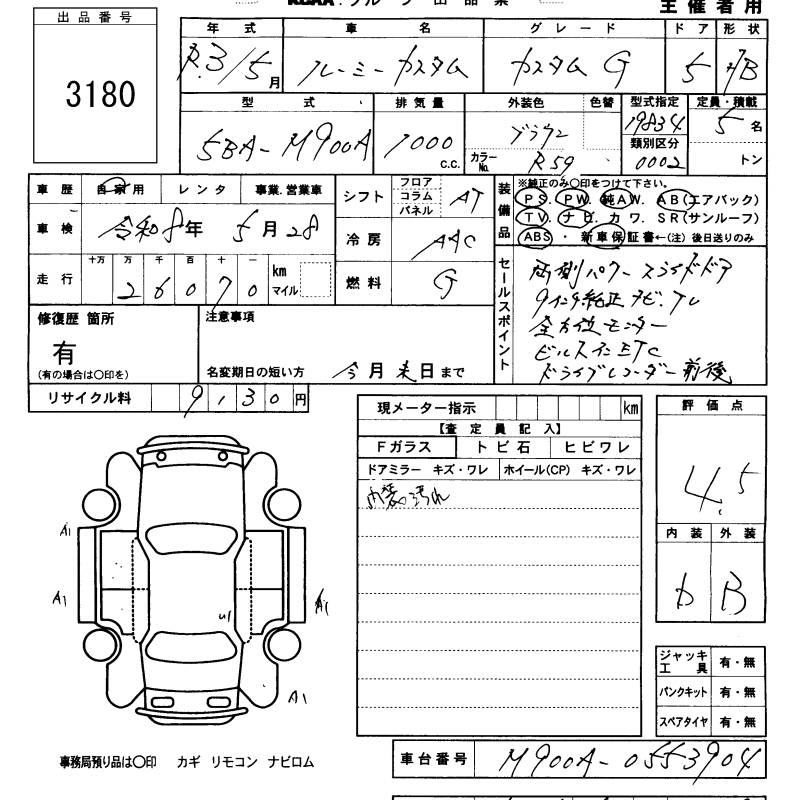 出品番号
3180
主催者用
年式 車名 グレード ドア 形状
R.3/5月 ルーミーカスタム カスタムG 5 HB
型式 排気量 外装色 色替 型式指定 定員・積載
5BA-M900A 1000 c.c. ブラウン カラーNo. R59 19834 類別区分 0002 5名 トン
車歴 自家用 レンタ 事業.営業車
車検 令和8年 5月28
走行 十万 万 千 百 十 一
26070 km マイル
シフト フロア コラム パネル AT
冷房 AAC
燃料 G
装備品 ※純正のみ〇印をつけて下さい。
PS. PW. 純AW. AB(エアバック)
TV. ナビ. カワ. SR(サンルーフ)
ABS ・ 新車保証書←(注) 後日送りのみ
セールスポイント
両側パワースライドドア
9インチ純正ナビ.TV
全方位モニター
ビルスインETC
ドライブレコーダー前後
修復歴 箇所
有
(有の場合は〇印を)
注意事項
名変期日の短い方 今月末日まで
リサイクル料 9130円
現メーター指示 km
【査定員記入】
Fガラス トビ石 ヒビワレ
ドアミラー キズ・ワレ ホイール(CP) キズ・ワレ
内装汚れ
評価点
4.5
内装 外装
b B
A1
A1
A1
U1
A1
ジャッキ工具 有・無
パンクキット 有・無
スペアタイヤ 有・無
事務局預り品は〇印 カギ リモコン ナビロム
車台番号 M900A-0553904